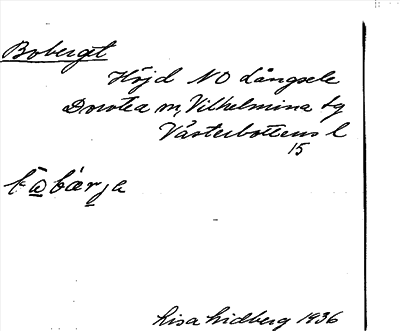 Boberget
Höjd NO Långsele
Dorotea m, Vilhelmina tg
Västerbottens l
15
Lisa Lidberg 1936